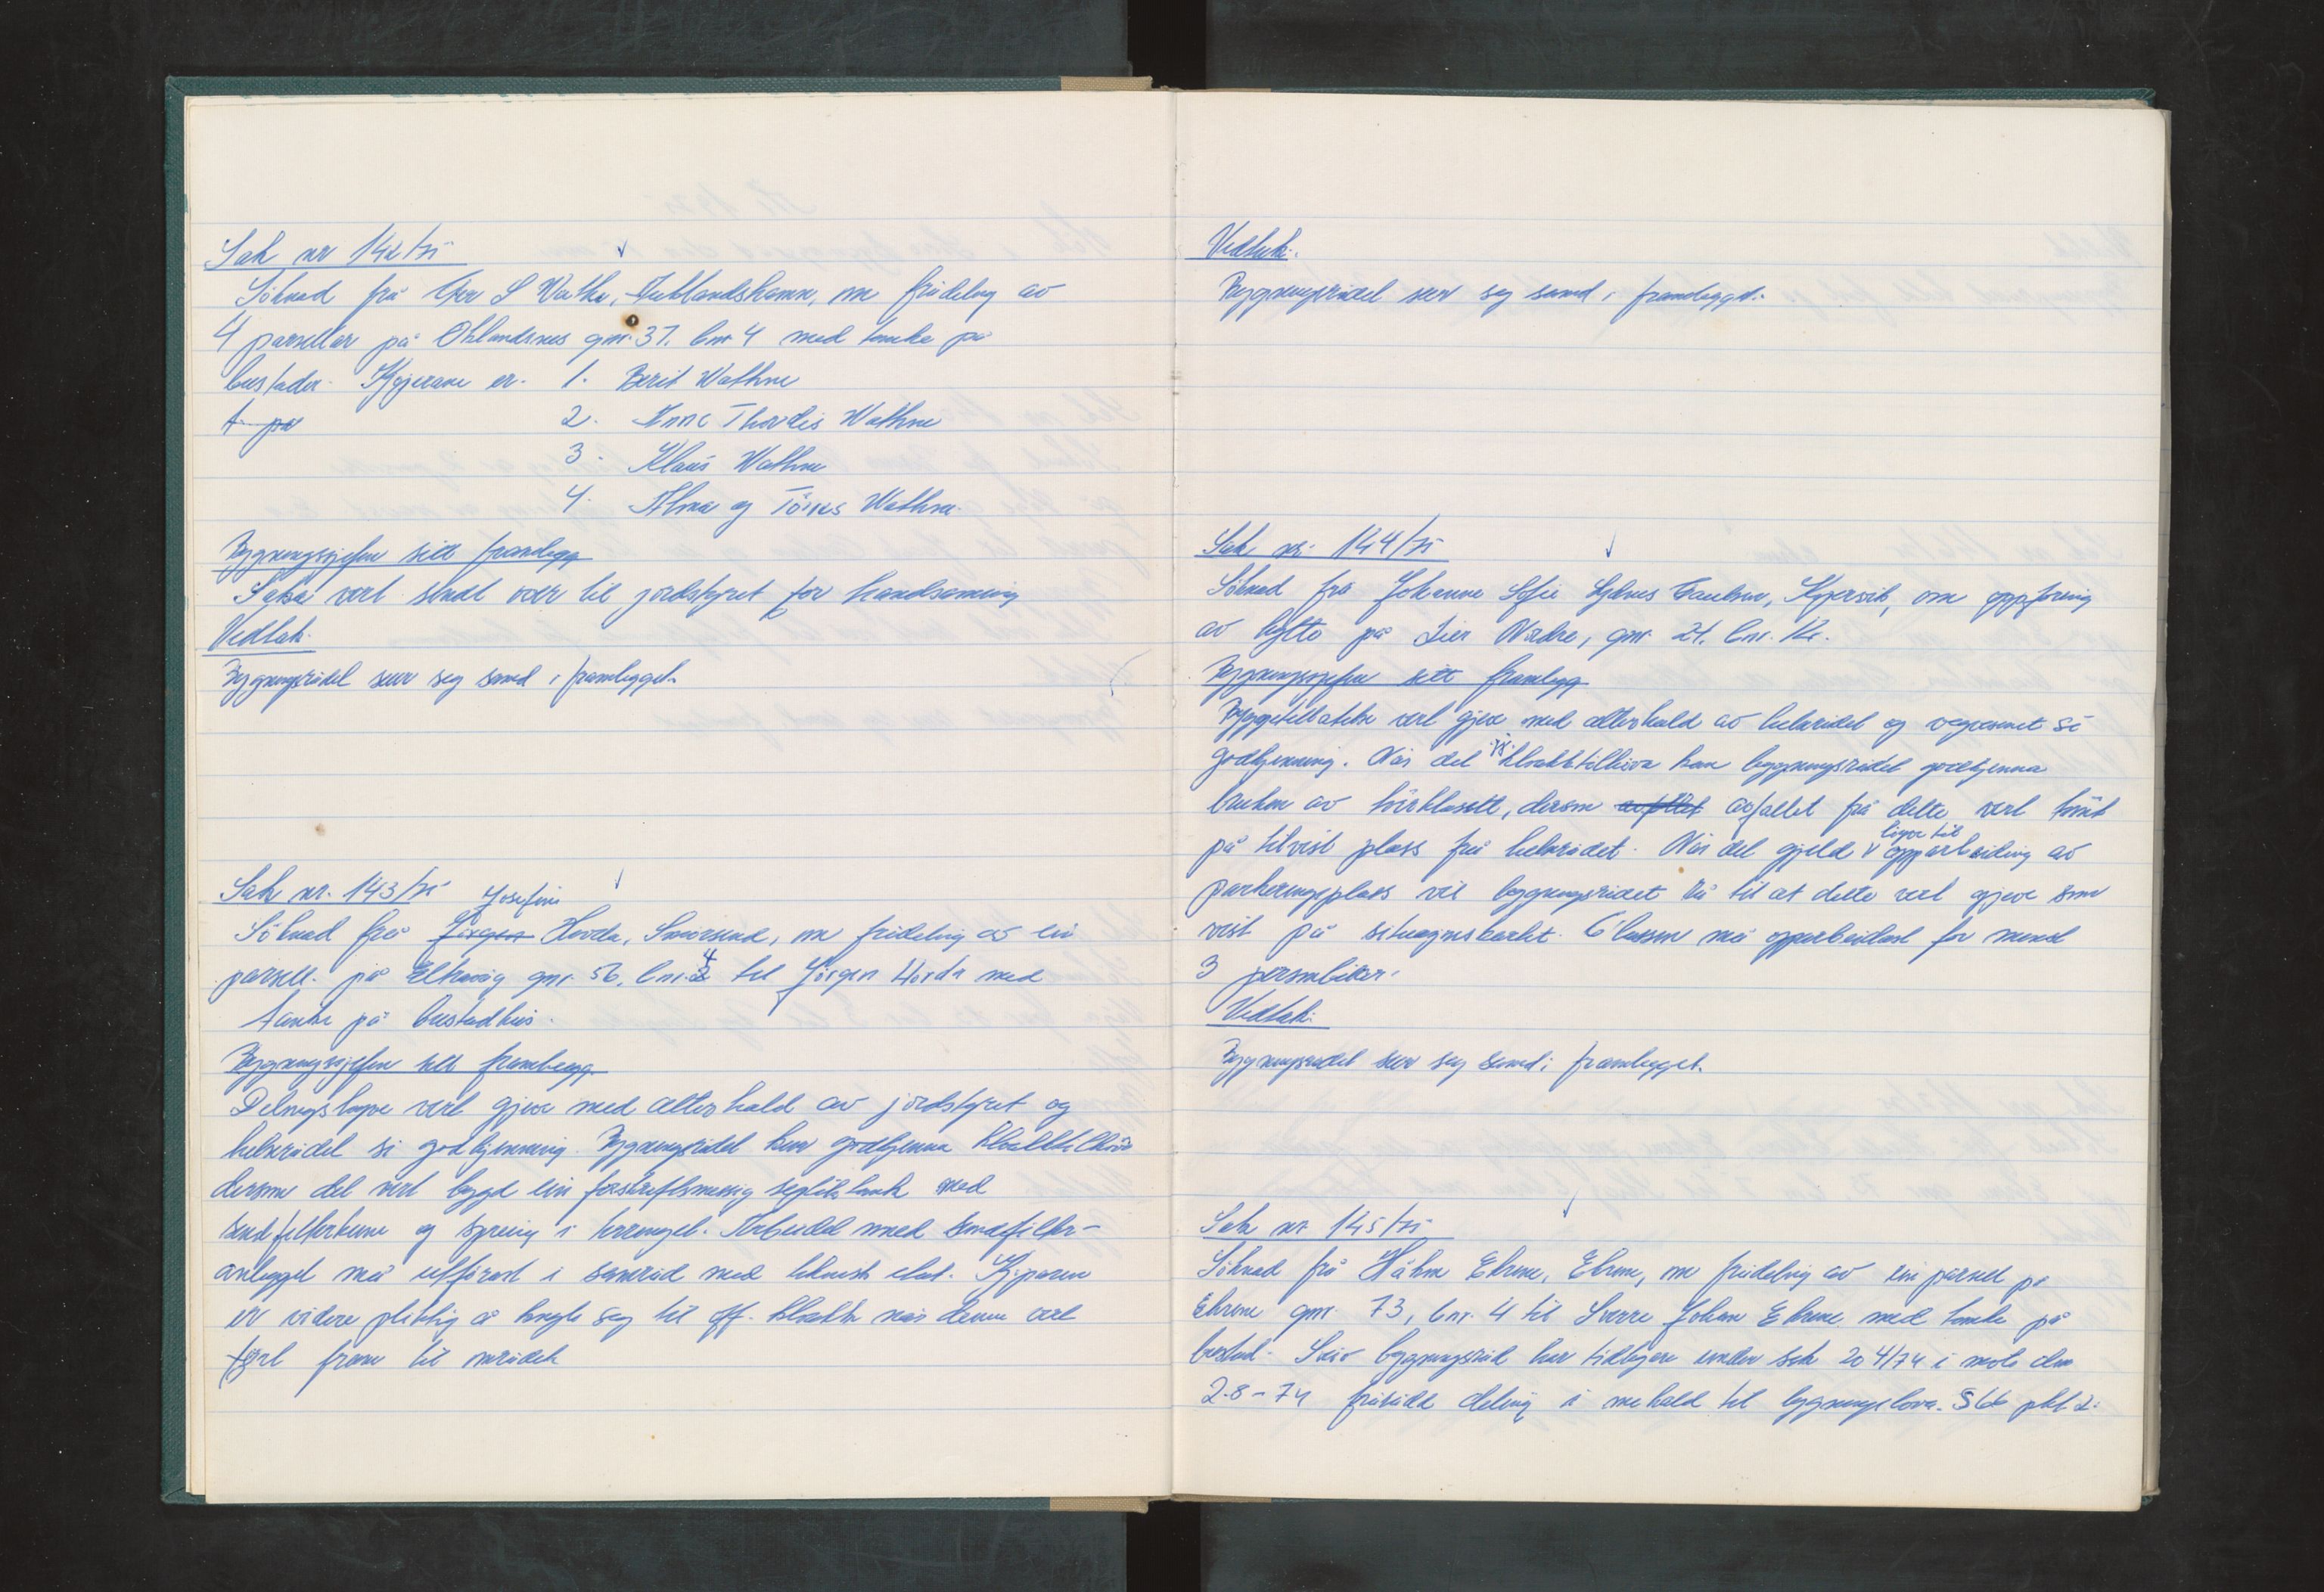 Sak nr 142/75
Söknad frå Ger S Wathne, Auklandshamn, om frådeling av
4 parsellar på Øklandsnes gnr. 37. bnr 4 med tanke på
bustader. Kjöjerane er. 1. Berit Wathne
1. pa
2. Anne Thordis Wathne
3. Klaus Wathne
4. Alma og Tönnes Wathne.
Bygningssjefen sitt framlegg
Saka vert sendt over til jordstyret for handsaming
Vedtak.
Bygningsrådet seier seg samd i framlegget.
Sak nr. 143/75
Josefine
Söknad frå Jörgen Hovda, Smörsund, om frådeling av ein
parsell. på Elkavåg gnr. 56, bnr. 2 4 til Jörgen Hovda med
tanke på bustadhus.
Bygningssjefen sitt framlegg.
Delingsløyve vert gjeve med atterhald av jordstyret og
helserådet si godkjenning. Bygningsrådet kan godkjenna kloakktilhöva
dersom det vert bygd ein forskriftsmessig septiktank med
sandfilterkum og spreiing i terrenget. Arbeidet med sandfilter-
anlegget må utförast i samråd med teknisk etat. Kjöparen
er vidare pliktig å knyte seg til off. kloakk når denne vert
fört fram til området
Vedtak:
Bygningsrådet seier seg samd i framlegget.
Sak nr. 144/75
Söknad frå Johanne Sofie Paulsen, Kopervik, om oppföring
av hytte på Lier Nordre, gnr. 21. bnr. 12.
Bygningssjefen sitt framlegg
Byggetillatelse vert gjeve med atterhald av helserådet og vegvesenet si
godkjenning. Når det gj. kloakktilhöva kan bygningsrådet godkjenna
bruken av törrklosett, dersom avfallet avfallet frå dette vert tömt
på tilvist plass frå helserådet. Når det gjeld löyve til opparbeiding av
parkeringsplass vil bygningsrådet rå til at dette vert gjeve som
vist på situasjonskartet. Plassen må opparbeidast for minst
3 personbilar.
Vedtak:
Bygningsrådet seier seg samd i framlegget.
Sak nr 145/75
Söknad frå Håkon Ekrene, Ekrene, om frådeling av ein parsell på
Ekrene gnr. 73, bnr. 4 til Sverre Johan Ekrene med tanke på
bustad. Sveio bygningsråd har tidlegare under sak 204/74 i möte den
2.8-74 frårådd deling i mehald til bygningslova. § 66 pkt 2.